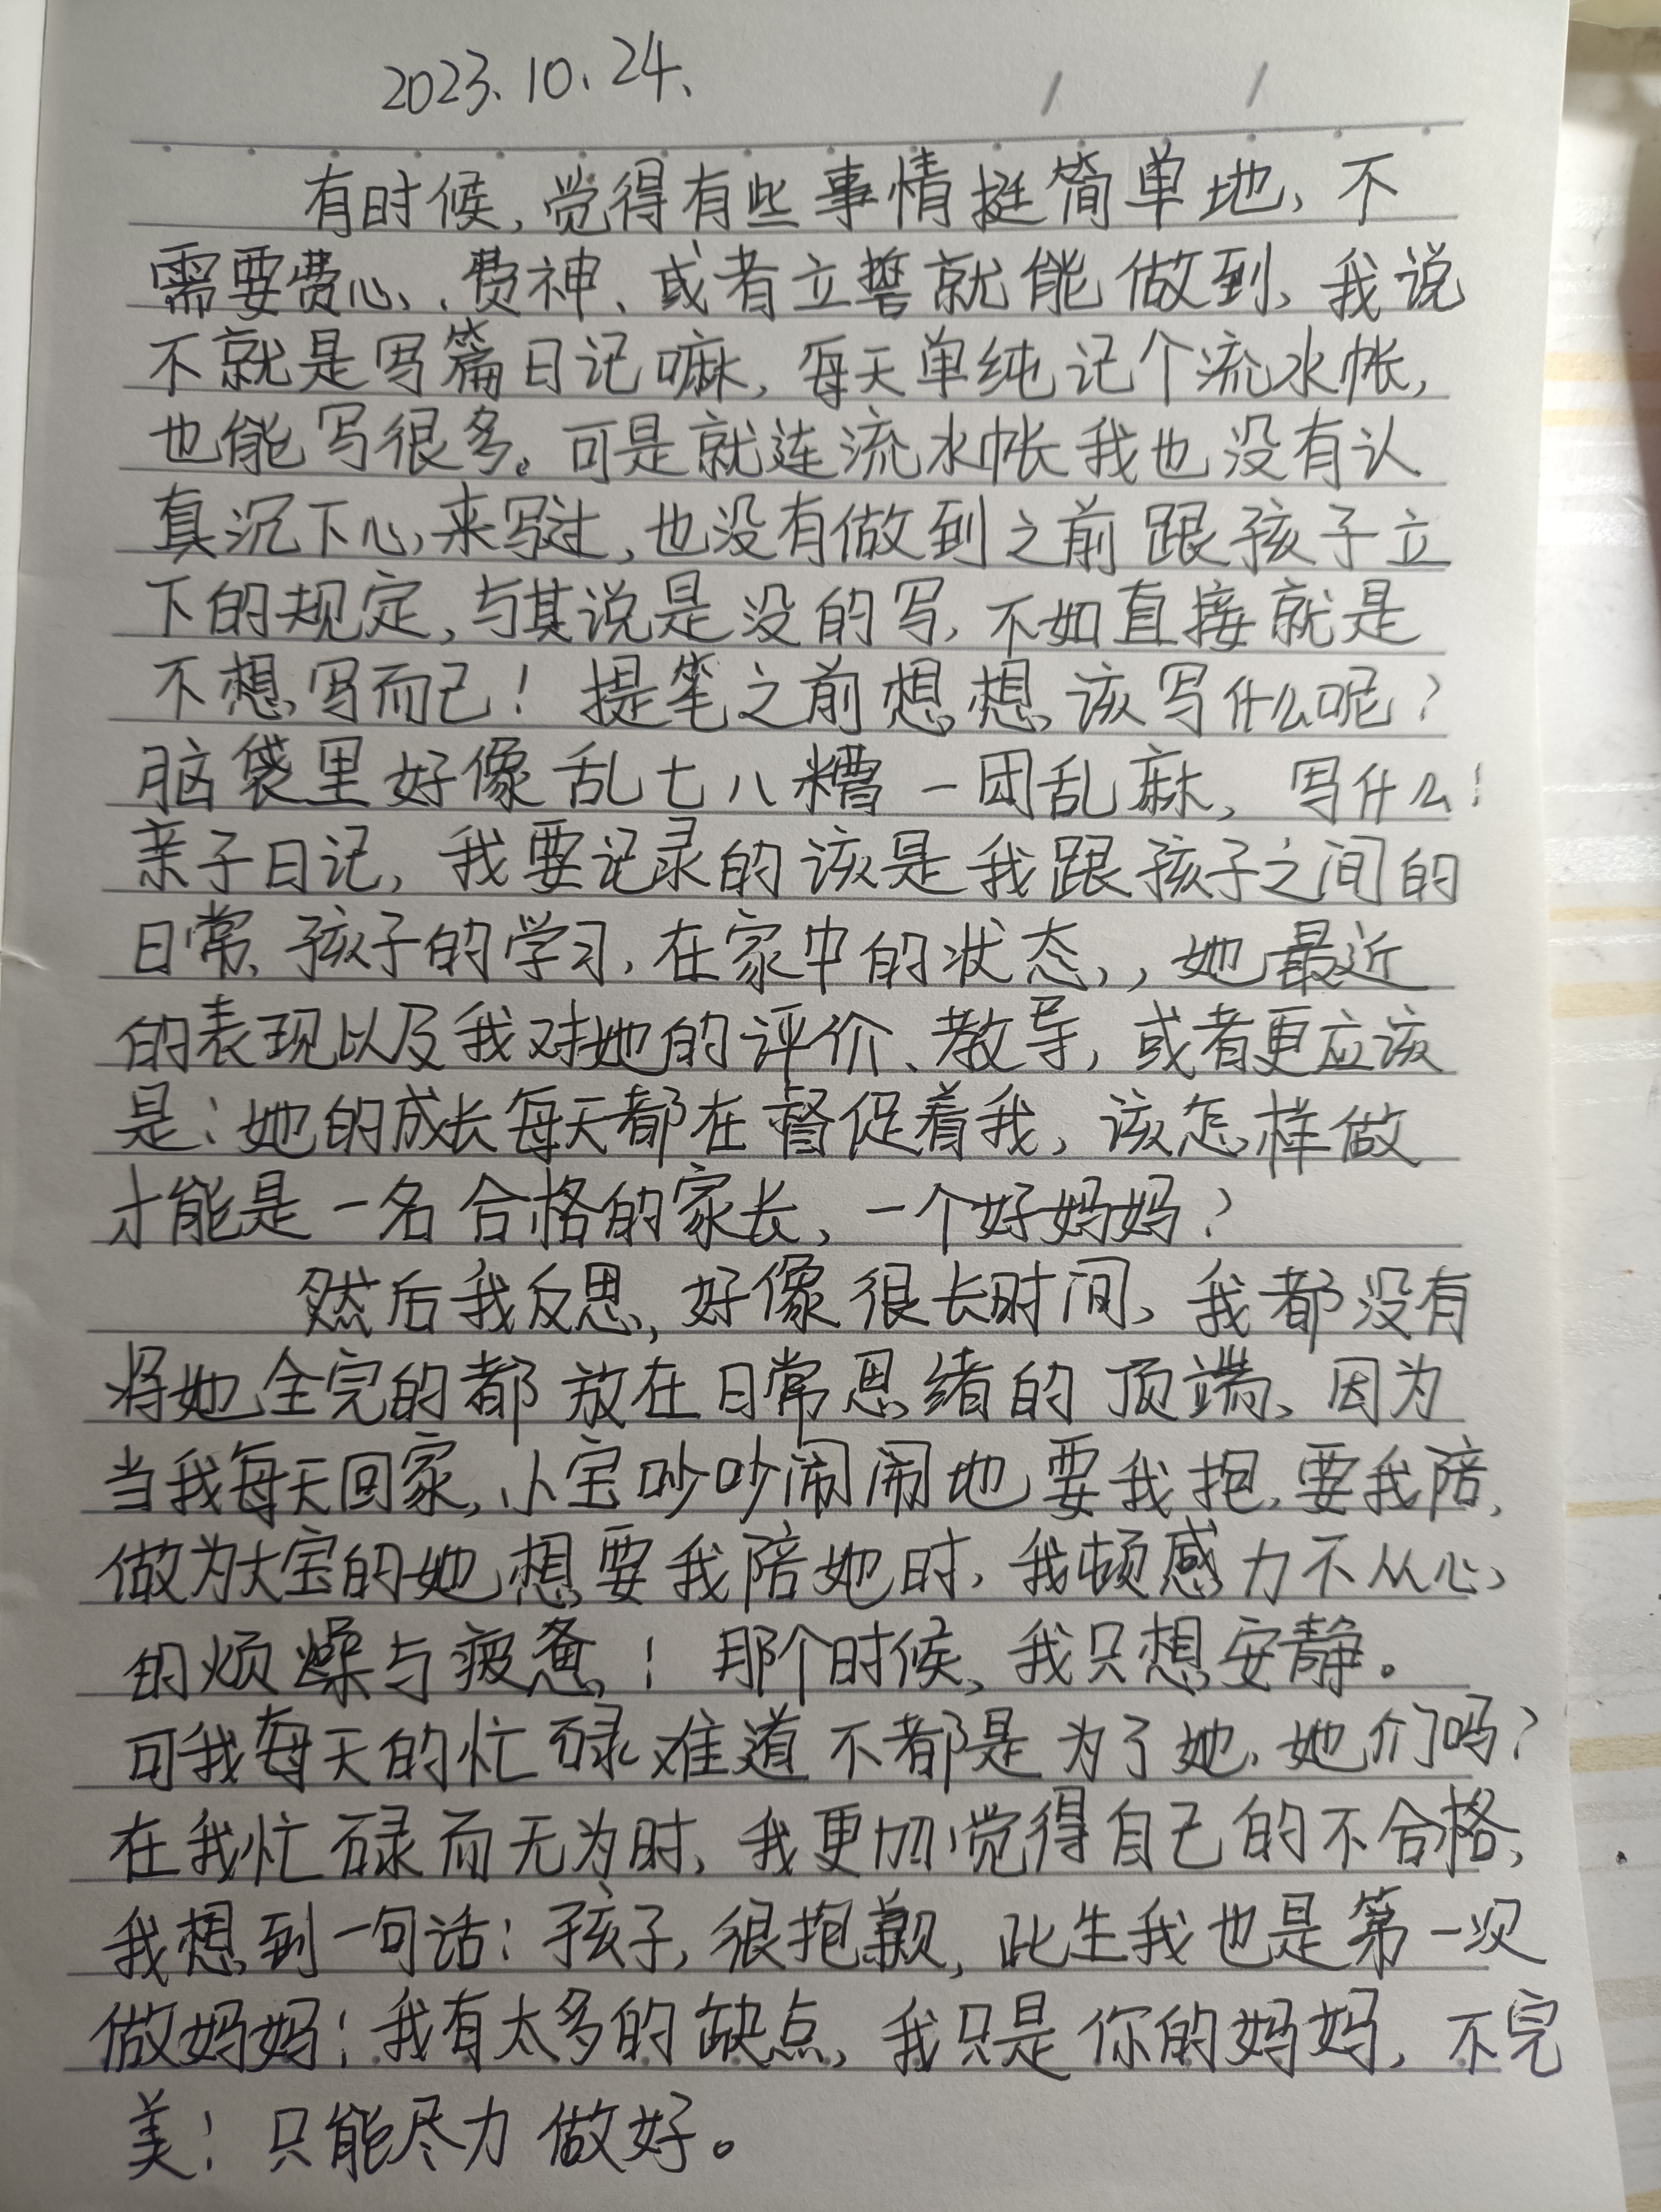 2023.10.24.
有时候,觉得有些事情挺简单地,不
需要费心、费神、或者立誓就能做到,我说
不就是写篇日记嘛,每天单纯记个流水帐,
也能写很多。可是就连流水帐我也没有认
真沉下心来写过,也没有做到之前跟孩子立
下的规定,与其说是没的写,不如直接就是
不想写而已!提笔之前想想,该写什么呢?
脑袋里好像乱七八糟一团乱麻,写什么!
亲子日记,我要记录的该是我跟孩子之间的
日常,孩子的学习,在家中的状态,,她最近
的表现以及我对她的评价、教导,或者更应该
是:她的成长每天都在督促着我,该怎样做
才能是一名合格的家长,一个好妈妈?
然后我反思,好像很长时间,我都没有
将她全完的都放在日常思绪的顶端,因为
当我每天回家,小宝吵吵闹闹地要我抱,要我陪,
做为大宝的她想要我陪她时,我顿感力不从心,
的烦燥与疲惫!那个时候,我只想安静。
可我每天的忙碌难道不都是为了她,她们吗?
在我忙碌而无为时,我更加觉得自己的不合格,
我想到一句话:孩子,很抱歉,此生我也是第一次
做妈妈!我有太多的缺点,我只是你的妈妈,不完
美!只能尽力做好。